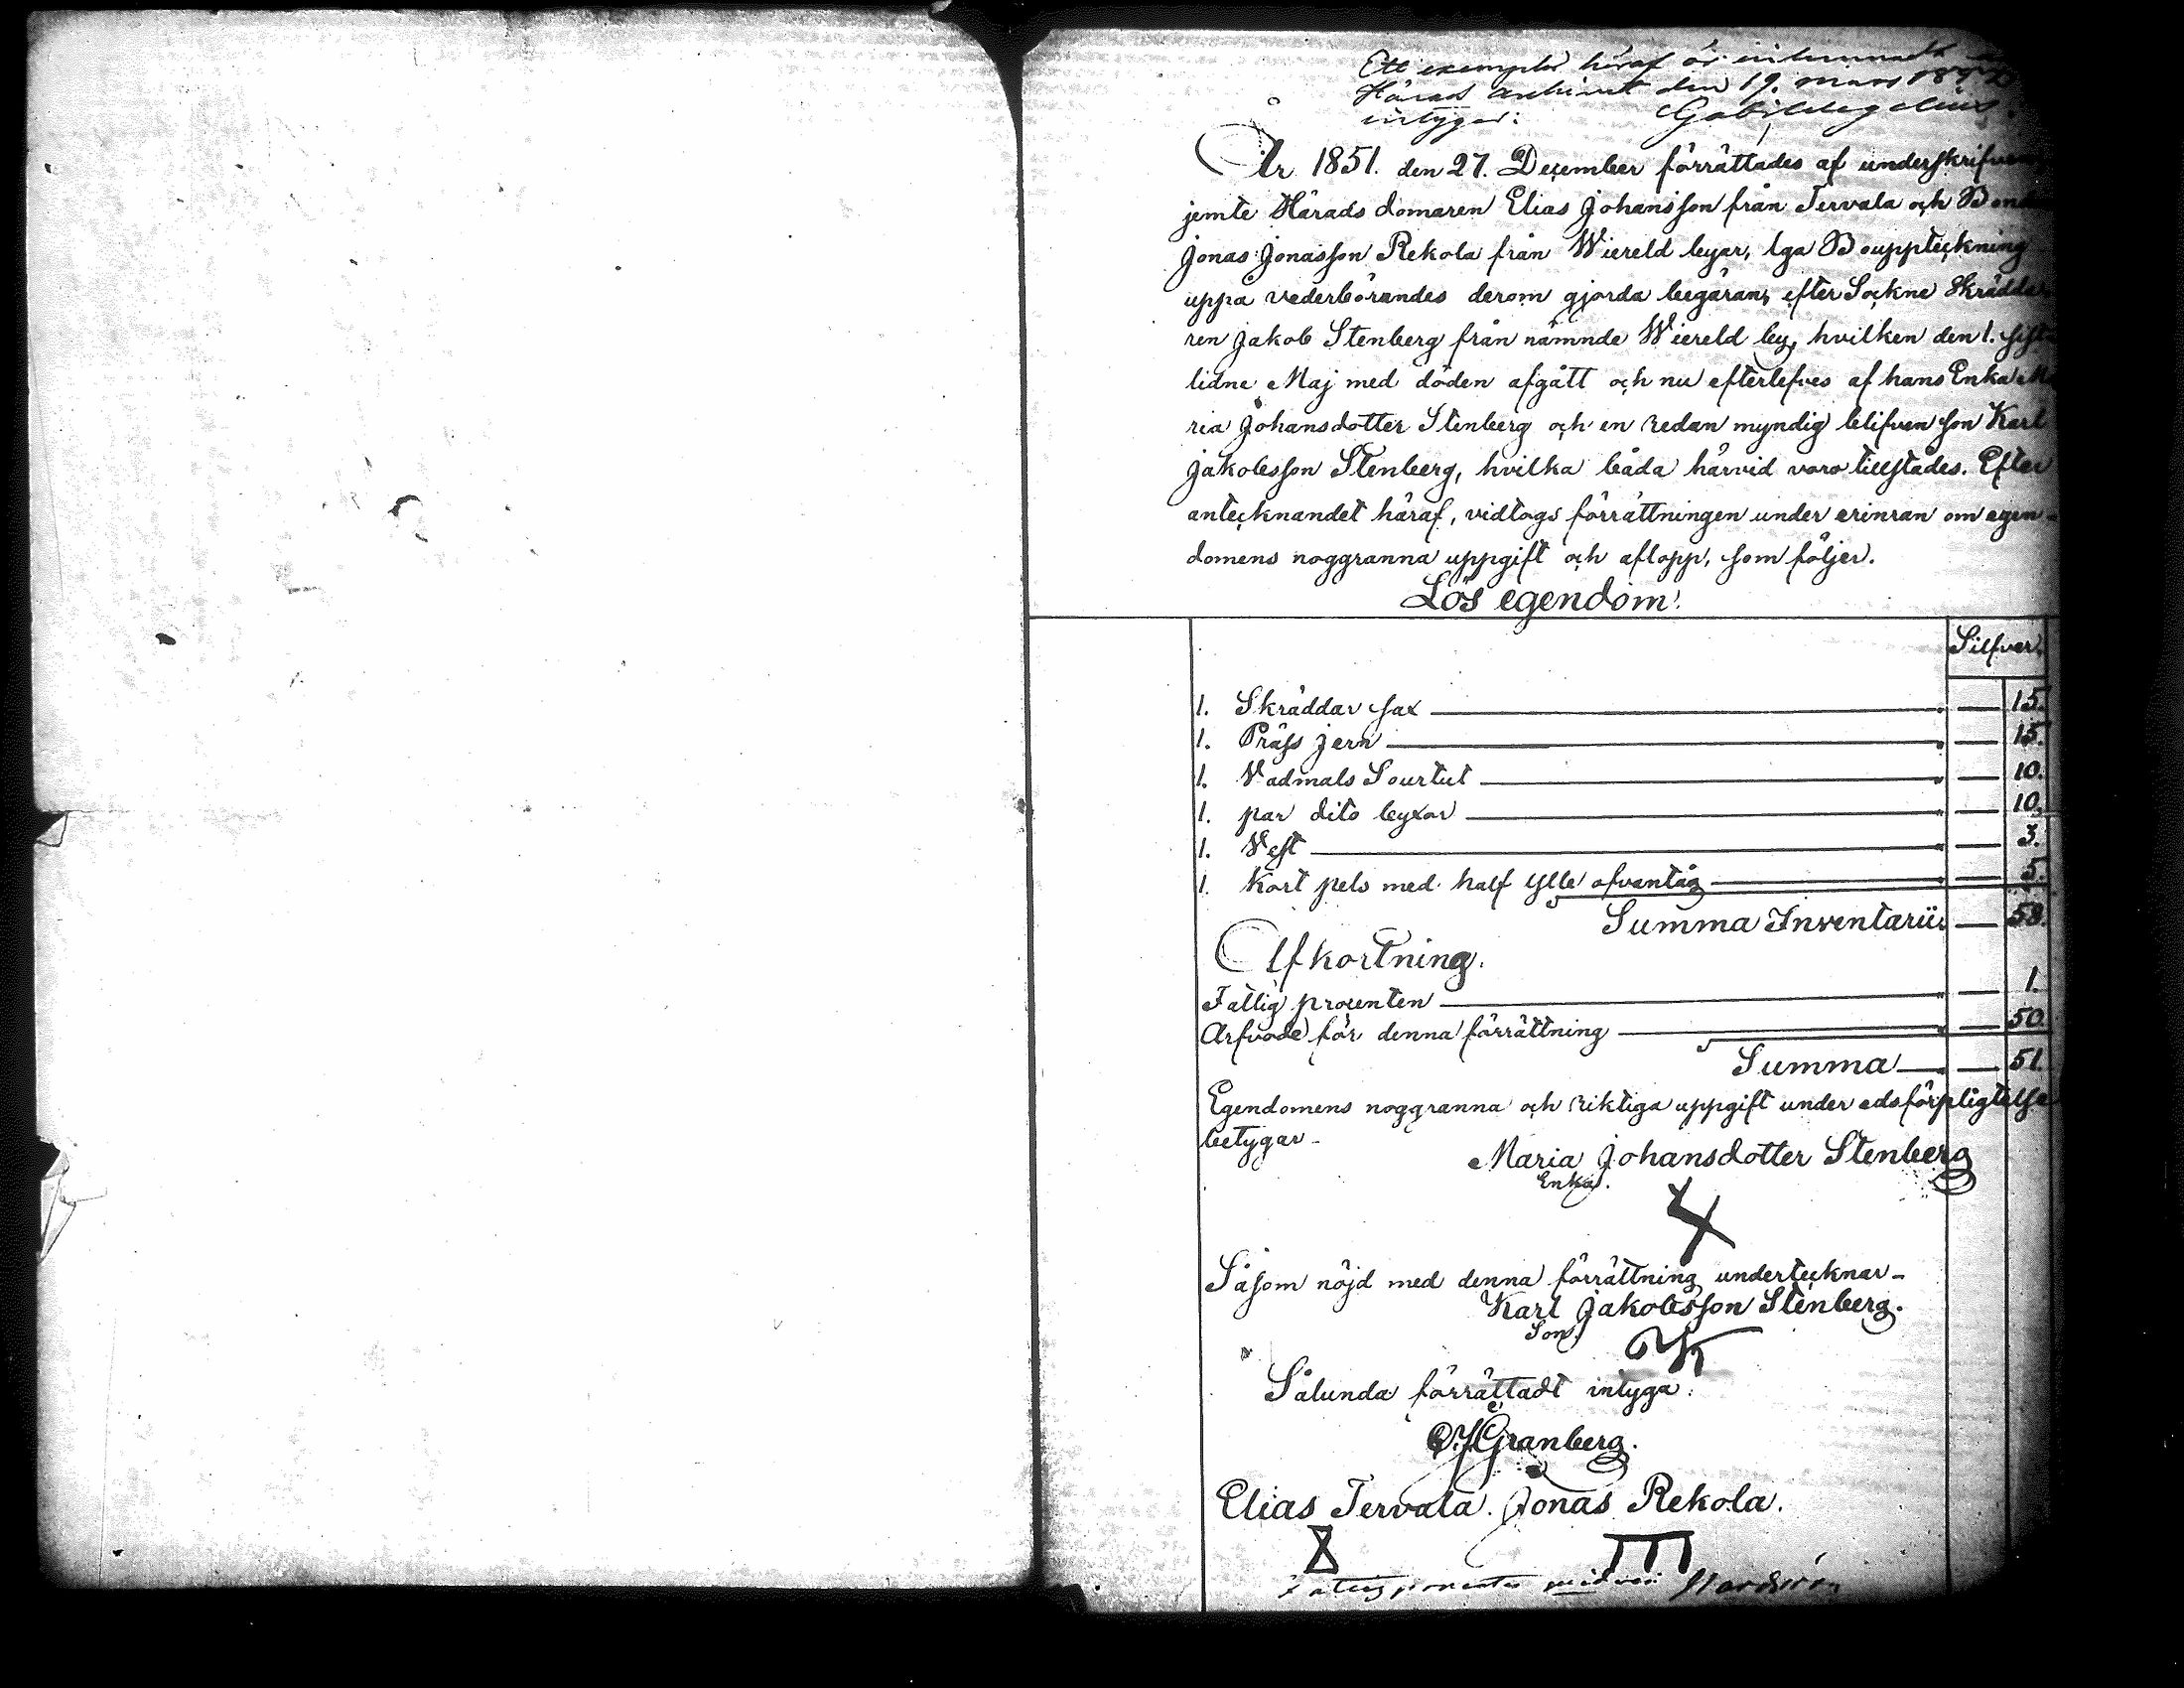 Ett exemplar häraf är inlemnadt
Härads Archivet den 19. mars
intygar:
År 1851. den 27. December förrättades af underskrifven
jemte Härads domaren Elias Johansson från Tervala och Bonden
Jonas Jonasson Rekola från Wiereld byar, lga Bouppteckning
uppå vederbörandes derom gjorda begäran, efter Sockne Skrädda-
ren Jakob Stenberg från nämnde Wiereld by, hvilken den 1. sist-
lidne Maj med döden afgått och nu efterlefves af hans Enka Ma
ria Johansdotter Stenberg och en redan myndig blifven son Karl
Jakobsson Stenberg, hvilka båda härvid voro tillstädes. Efter
antecknandet häraf, vidtogs förrättningen under erinran om egen-
domens noggranna uppgift och aflopp, som följer.
Lös egendom.
Silfver.
1. Skräddar sax — 15.
1. Präss jern — 15.
1. Vadmals Sourtut — 10.
1. par dito byxor — 10.
1. Vest — 3.
1. Kort pels med half ylle ofvantåg — 5.
Summa Inventarii. — 58.
Afkortning.
Fattig procenten — 1.
Arfvode för denna förrättning — 50.
Summa — 51.
Egendomens noggranna och riktiga uppgift under edsförpligtelse
betygar -
Maria Johansdotter Stenberg
Enka.
Såsom nöjd med denna förrättning undertecknar -
Karl Jakobsson Stenberg.
Son.
Sålunda förrättadt intyga:
Granberg.
Elias Tervala. Jonas Rekola.